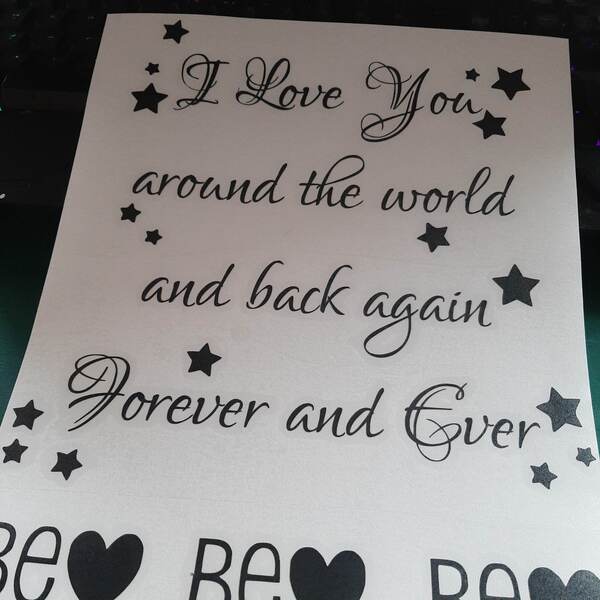 I Love You
around the world
and back again
Forever and Ever
Be Be Be